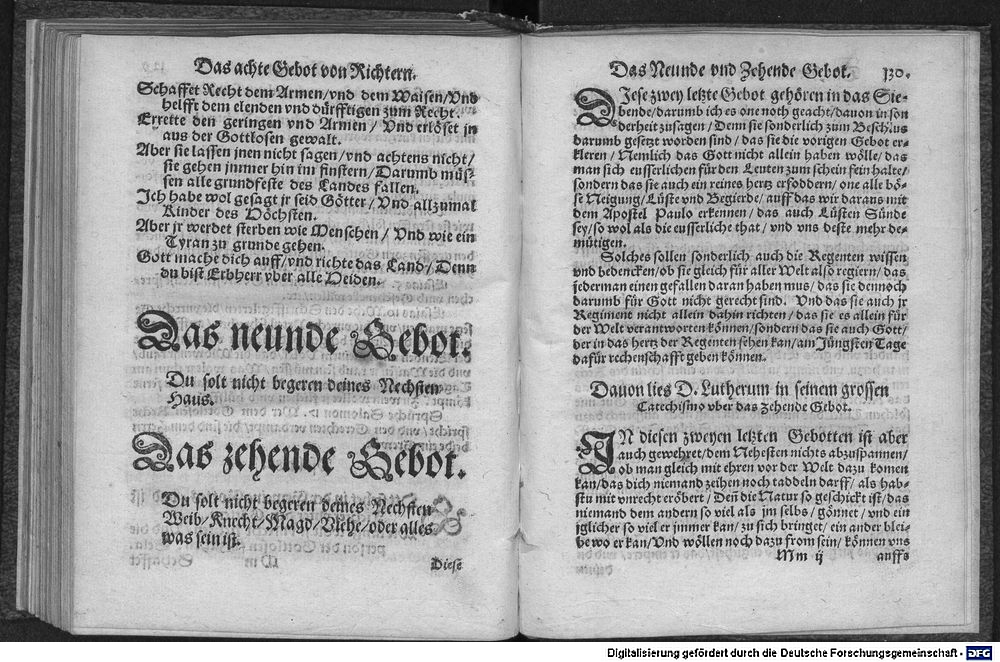 Das achte Gebot von Richtern.
Schaffet Recht dem Armen/vnd dem Waisen/Vnd
helfft dem elenden vnd dürfftigen zum Recht.
Errette den geringen vnd Armen/Vnd erlöset jn
aus der Gottlosen gewalt.
Aber sie lassen jnen nicht sagen/vnd achtens nicht/
sie gehen jmmer hin im finstern/Darumb müs-
sen alle grundfeste des Landes fallen.
Ich habe wol gesagt jr seid Götter/Vnd allzumal
Kinder des Höchsten.
Aber jr werdet sterben wie Menschen/Vnd wie ein
Tyran zu grunde gehen.
Gott mache dich auff/vnd richte das Land/Denn
du bist Erbherr vber alle Heiden.
Das neunde Gebot.
Du solt nicht begeren deines Nechsten
Haus.
Das zehende Gebot.
Du solt nicht begeren deines Nechsten
Weib/Knecht/Magd/Viehe/oder alles
was sein ist.
Diese
Das Neunde vnd Zehende Gebot. 130.
DIese zwey letzte Gebot gehören in das Sie-
bende/darumb ich es one noch geacht/dauon in son
derheit zusagen/Denn sie sonderlich zum Beschlus
darumb gesetzt worden sind/das sie die vorigen Gebot er-
kleren/Nemlich das Gott nicht allein haben wölle/das
man sich eusserlichen für den Leuten zum schein fein halte/
sondern das sie auch ein reines hertz erfoddern/one alle bö-
se Neigung/Lüste vnd Begierde/auff das wir daraus mit
dem Apostel Paulo erkennen/das auch Lüsten Sünde
sey/so wol als die eusserliche that/vnd vns deste mehr de-
mütigen.
Solches sollen sonderlich auch die Regenten wissen
vnd bedencken/ob sie gleich für aller Welt also regiern/das
jederman einen gefallen daran haben mus/das sie dennoch
darumb für Gott nicht gerecht sind. Vnd das sie auch jr
Regiment nicht allein dahin richten/das sie es allein für
der Welt verantworten können/sondern das sie auch Gott/
der in das hertz der Regenten sehen kan/am Jüngsten Tage
dafür rechenschafft geben können.
Dauon lies D. Lutherum in seinem grossen
Catechismo vber das Zehende Gebot.
IN diesen zweyen letzten Gebotten ist aber
auch gewehret/dem Nehesten nichts abzuspannen/
ob man gleich mit ehren vor der Welt dazu komen
kan/das dich niemand zeihen noch taddeln darff/als hab-
stu mit vnrecht eröbert/Deñ die Natur so geschickt ist/das
niemand dem andern so viel als jm selbs/gönnet/vnd ein
jglicher so viel er jmmer kan/zu sich bringet/ein ander blei-
be wo er kan/Vnd wöllen noch dazu from sein/können vns
Mm ij auffs
Digitalisierung gefördert durch die Deutsche Forschungsgemeinschaft - DFG